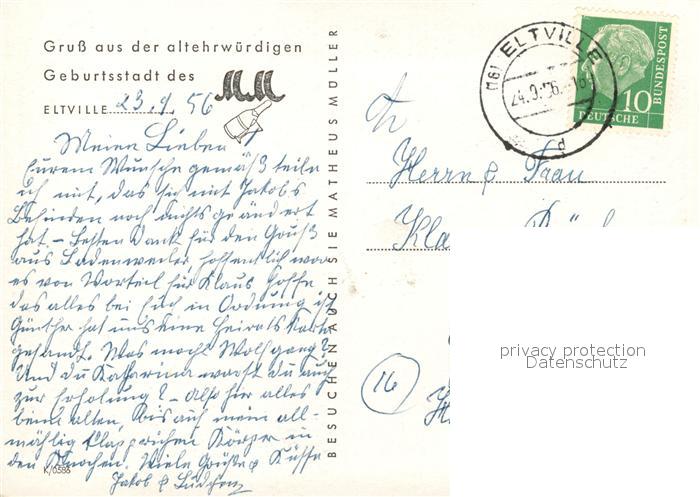 Gruß aus der altehrwürdigen
Geburtsstadt des MM
ELTVILLE 23.9.56
Meine Lieben!
Eurem Wunsche gemäß teile
ich mit, das sich mit Jakobs
Befinden noch nichts geändert
hat. – Besten Dank für den Gruß
aus Badenweiler, hoffentlich war
es von Vorteil für Klaus. Hoffe
das alles bei Euch in Ordnung ist
Günther hat uns eine Heirats Karte
gesandt. Was macht Wolfgang?
Und du Katharina warst du auch
zur Erholung? – Also hier alles
beim alten, bis auf mein all-
mählig klapprichen Körper in
den Knochen. Viele Grüße & Küsse
Jakob &
K/0586
BESUCHEN AUCH SIE MATHEUS MÜLLER
(16) ELTVILLE
24.9.56
d
10
DEUTSCHE
BUNDESPOST
Herrn & Frau
16
privacy protection
Datenschutz